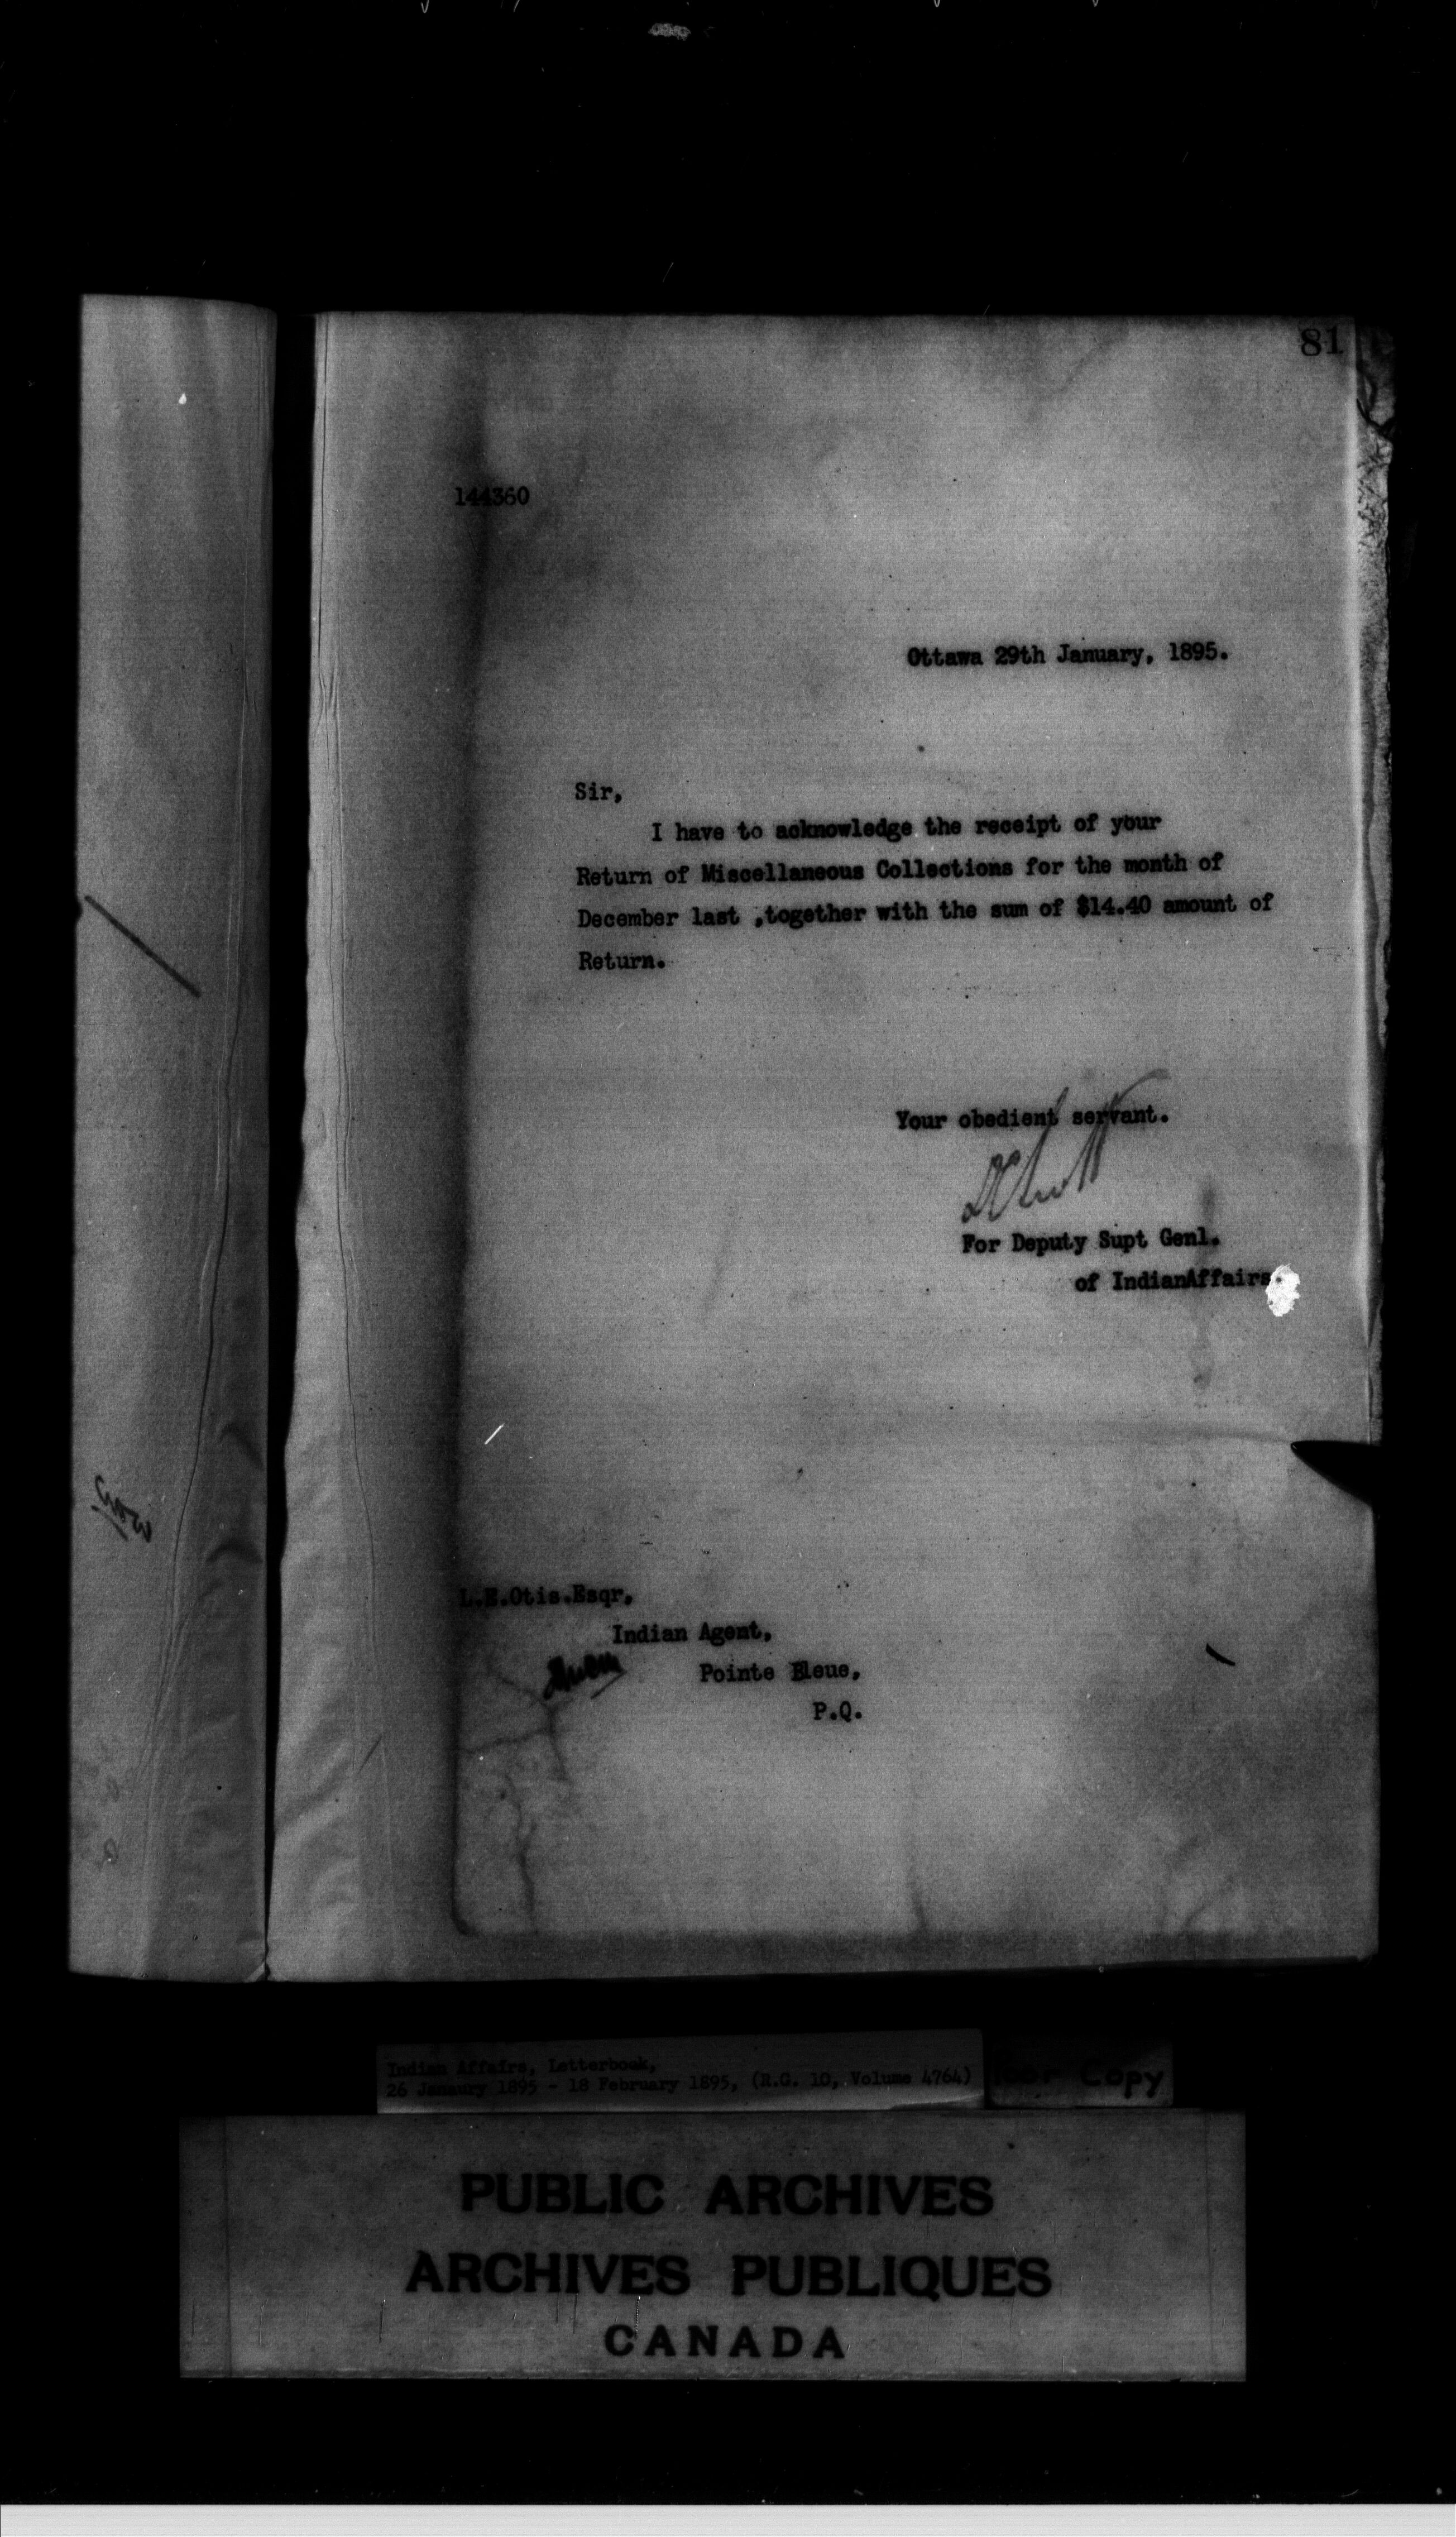 81
144360
Ottawa 29th January, 1895.
Sir,
I have to acknowledge the receipt of your
Return of Miscellaneous Collections for the month of
December last ,together with the sum of $14.40 amount of
Return.
Your obedient servant.
For Deputy Supt Genl.
of IndianAffairs.
L.E.Otis.Esqr,
Indian Agent,
Pointe Bleue,
P.Q.
Indian Affairs, Letterbook,
26 Janaury 1895 - 18 February 1895, (R.G. 10, Volume 4764)
Poor Copy
PUBLIC ARCHIVES
ARCHIVES PUBLIQUES
CANADA